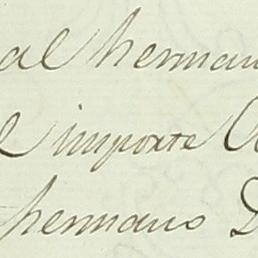 al herman
importe
hermano D